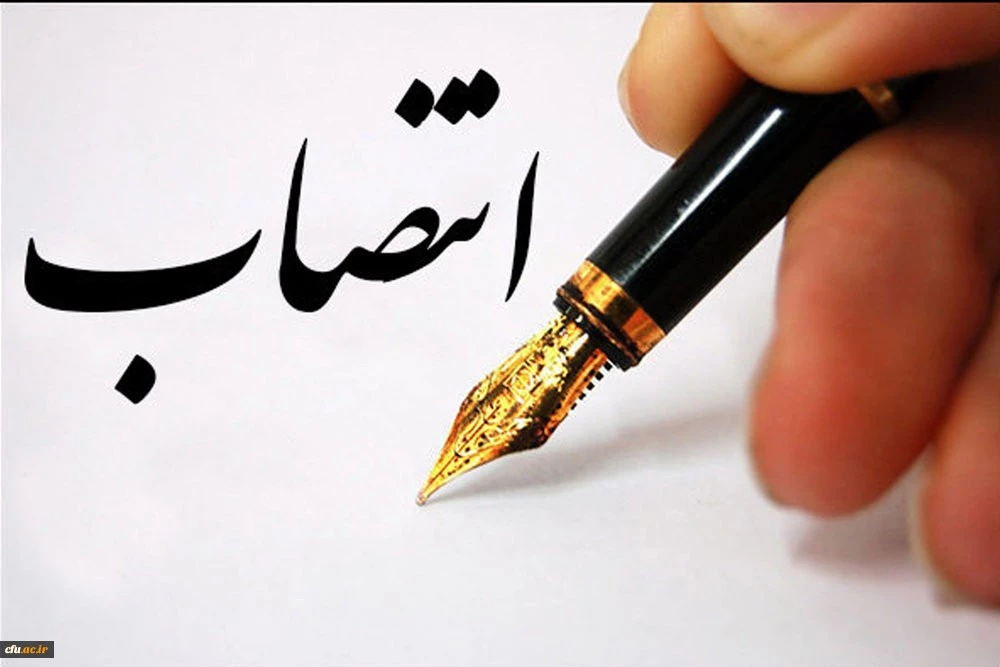 انتصاب
cfu.ac.ir